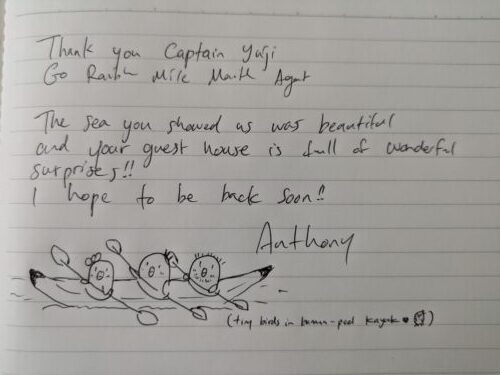 Thank you Captain Yuji
Go Raibh Mile Maith Agat
The sea you showed us was beautiful
and your guest house is full of wonderful
surprises!!
I hope to be back soon!!
Anthony
(tiny birds in banana-peel kayak )